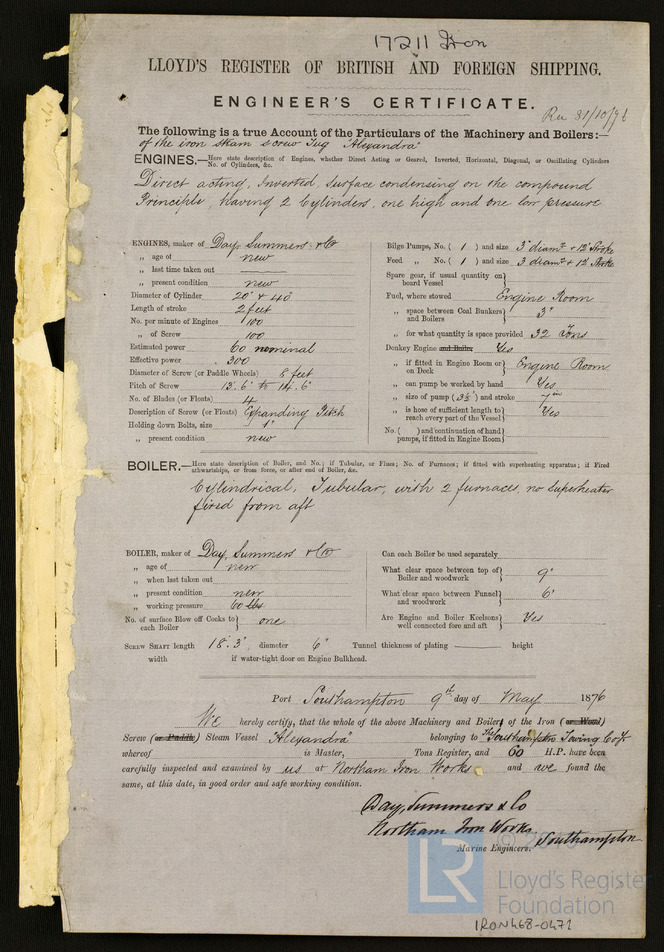 17211 Iron
LLOYD'S REGISTER OF BRITISH AND FOREIGN SHIPPING.
ENGINEER'S CERTIFICATE.
The following is a true Account of the Particulars of the Machinery and Boilers:—
of the iron steam screw Tug "Alexandra"
ENGINES,—Here state description of Engines, whether Direct Acting or Geared, Inverted, Horizontal, Diagonal, or Oscillating Cylinders
No. of Cylinders, &c.
Direct acting, Inverted, Surface condensing on the compound
Principle, having 2 Cylinders, one high and one low pressure
ENGINES, maker of Day, Summers & Co
„ age of new
„ last time taken out
„ present condition new
Diameter of Cylinder 20" & 40"
Length of stroke 2 feet
No. per minute of Engines 100
„ of Screw 100
Estimated power 60 nominal
Effective power 300
Diameter of Screw (or Paddle Wheels) 8 feet
Pitch of Screw 13'.6" to 14'.6"
No. of Blades (or Floats) 4
Description of Screw (or Floats) Expanding Pitch
Holding down Bolts, size 1"
„ present condition new
Bilge Pumps, No. ( 1 ) and size 3" diamr & 12" Stroke
Feed „ No. ( 1 ) and size 3 diamr & 12" Stroke
Spare gear, if usual quantity on
board Vessel
Fuel, where stowed Engine Room
„ space between Coal Bunkers
and Boilers 3"
„ for what quantity is space provided 32 Tons
Donkey Engine and Boiler Yes
„ if fitted in Engine Room or
on Deck Engine Room
„ can pump be worked by hand Yes
„ size of pump (3½") and stroke 7 in
„ is hose of sufficient length to
reach every part of the Vessel Yes
No. ( ) and continuation of hand
pumps, if fitted in Engine Room
BOILER,—Here state description of Boiler, and No.; if Tubular, or Flues; No. of Furnaces; if fitted with superheating apparatus; if Fired
athwartships, or from force, or after end of Boiler, &c.
Cylindrical, Tubular, with 2 furnaces, no Superheater
fired from aft
BOILER, maker of Day, Summers & Co
„ age of new
„ when last taken out
„ present condition new
„ working pressure 60 lbs
No. of surface Blow off Cocks to
each Boiler one
Can each Boiler be used separately
What clear space between top of
Boiler and woodwork 9"
What clear space between Funnel
and woodwork 6"
Are Engine and Boiler Keelsons
well connected fore and aft Yes
SCREW SHAFT length 18'.3" diameter 6" Tunnel thickness of plating height
width if water-tight door on Engine Bulkhead.
Port Southampton 9th day of May 1876
We hereby certify, that the whole of the above Machinery and Boilers of the Iron (or Wood)
Screw (or Paddle) Steam Vessel "Alexandra" belonging to The Southampton Towing Coy
whereof is Master, Tons Register, and 60 H.P. have been
carefully inspected and examined by us at Northam Iron Works and we found the
same, at this date, in good order and safe working condition.
Day, Summers & Co
Northam Iron Works
Marine Engineers. Southampton
LR
Lloyd's Register
Foundation
IRON468-0471